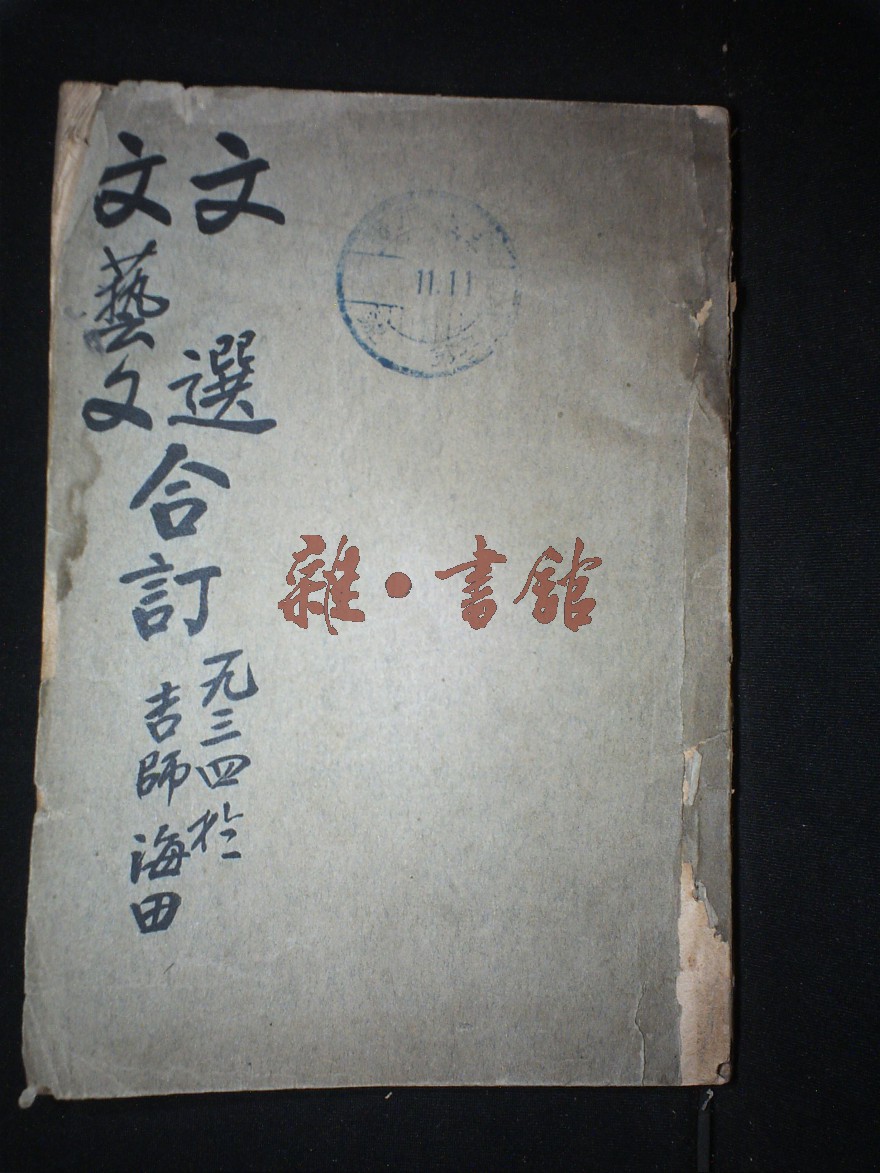 文選
文藝文
合訂
一九三四於
吉師 海田
11.11
雜●書館